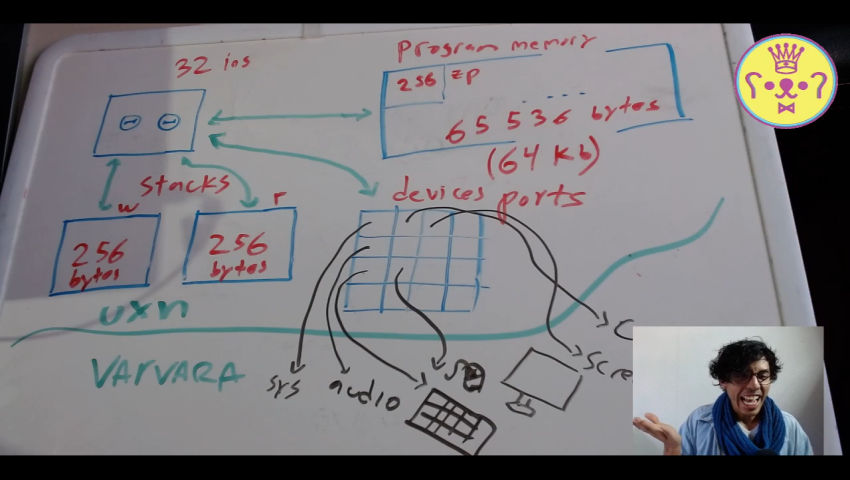 32 ins
program memory
256 zp
65 536 bytes
(64 Kb)
stacks
w
r
devices ports
256
bytes
256
bytes
uxn
VARVARA
sys
audio